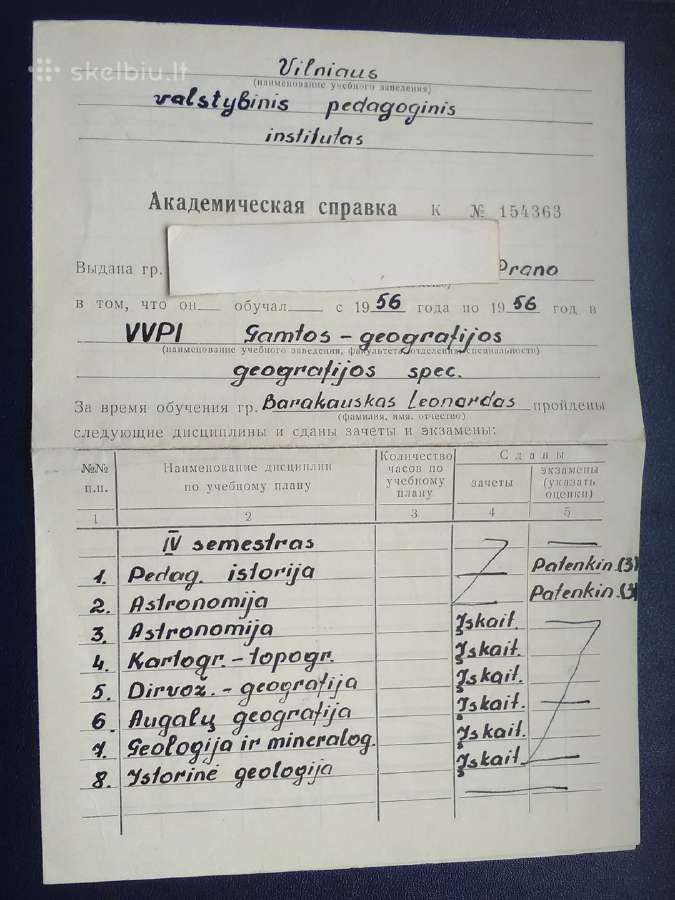 skelbiu.lt
Vilniaus
(наименование учебного заведения)
valstybinis pedagoginis
institutas
Академическая справка К № 154363
Выдана гр. Prano
в том, что он обучал с 1956 года по 1956 год в
VVPI Gamtos-geografijos
(наименование учебного заведения, факультета, отделения, специальности)
geografijos spec.
За время обучения гр. Barakauskas Leonardas пройдены
(фамилия, имя, отчество)
следующие дисциплины и сданы зачеты и экзамены:
№№ п.п. Наименование дисциплин по учебному плану Количество часов по учебному плану Сданы зачеты экзамены (указать оценки)
1 2 3 4 5
IV semestras —
1. Pedag. istorija — Patenkin.(3)
2. Astronomija — Patenkin.(3)
3. Astronomija Įskait.
4. Kartogr.-topogr. Įskait.
5. Dirvož.-geografija Įskait.
6. Augalų geografija Įskait. —
7. Geologija ir mineralog. Įskait.
8. Istorinė geologija Įskait. —